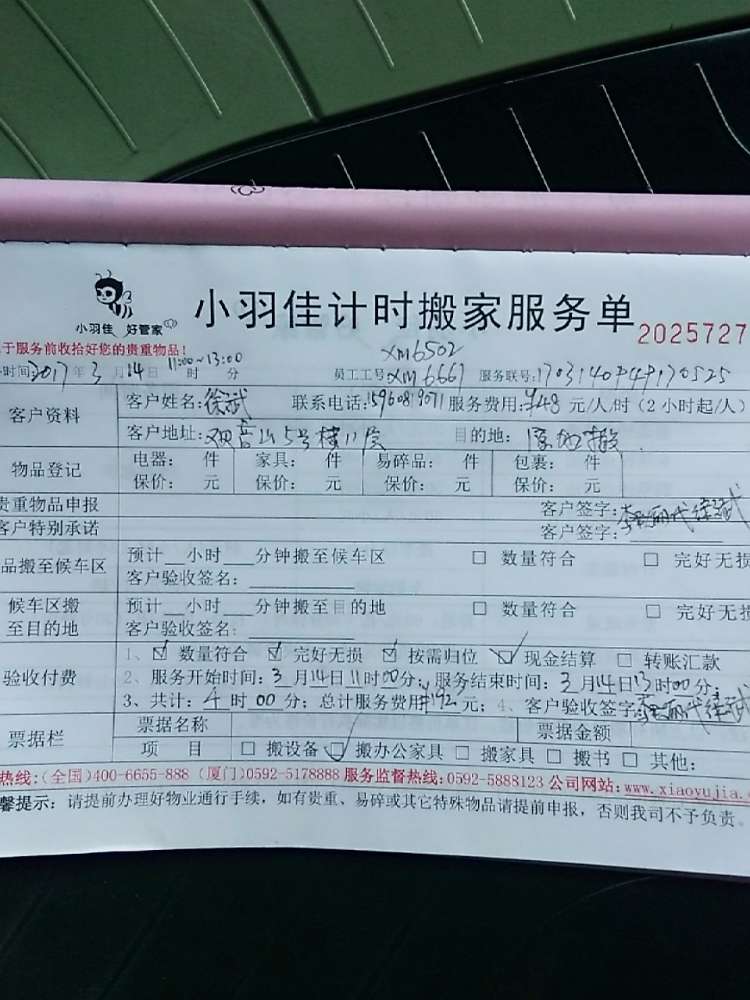 小羽佳 好管家
小羽佳计时搬家服务单
2025727
于服务前收拾好您的贵重物品!
XM6502
时间:2017年3月14日 11:00~13:00 时 分 员工工号:XM6667 服务联号:
客户资料
客户姓名:徐斌 联系电话:15960819071 服务费用:¥48元/人/时(2小时起/人)
客户地址:观音山5号楼11层 目的地:原地搬
物品登记
电器: 件 家具: 件 易碎品: 件 包裹: 件
保价: 元 保价: 元 保价: 元 保价: 元
贵重物品申报 客户签字:
客户特别承诺 客户签字:
品搬至候车区
预计__小时__分钟搬至候车区 □ 数量符合 □ 完好无损
客户验收签名:
候车区搬至目的地
预计__小时__分钟搬至目的地 □ 数量符合 □ 完好无损
客户验收签名:
验收付费
1、☑ 数量符合 ☑ 完好无损 ☑ 按需归位 ☑ 现金结算 □ 转账汇款
2、服务开始时间:3月14日11时00分;服务结束时间:3月14日13时00分;
3、共计:4时00分;总计服务费用¥192元;4、客户验收签字
票据栏
票据名称 票据金额
项 目 □ 搬设备 ☑ 搬办公家具 □ 搬家具 □ 搬书 □ 其他:
热线:(全国)400-6655-888 (厦门)0592-5178888 服务监督热线:0592-5888123 公司网站:www.xiaoyujia.
馨提示:请提前办理好物业通行手续,如有贵重、易碎或其它特殊物品请提前申报,否则我司不予负责。